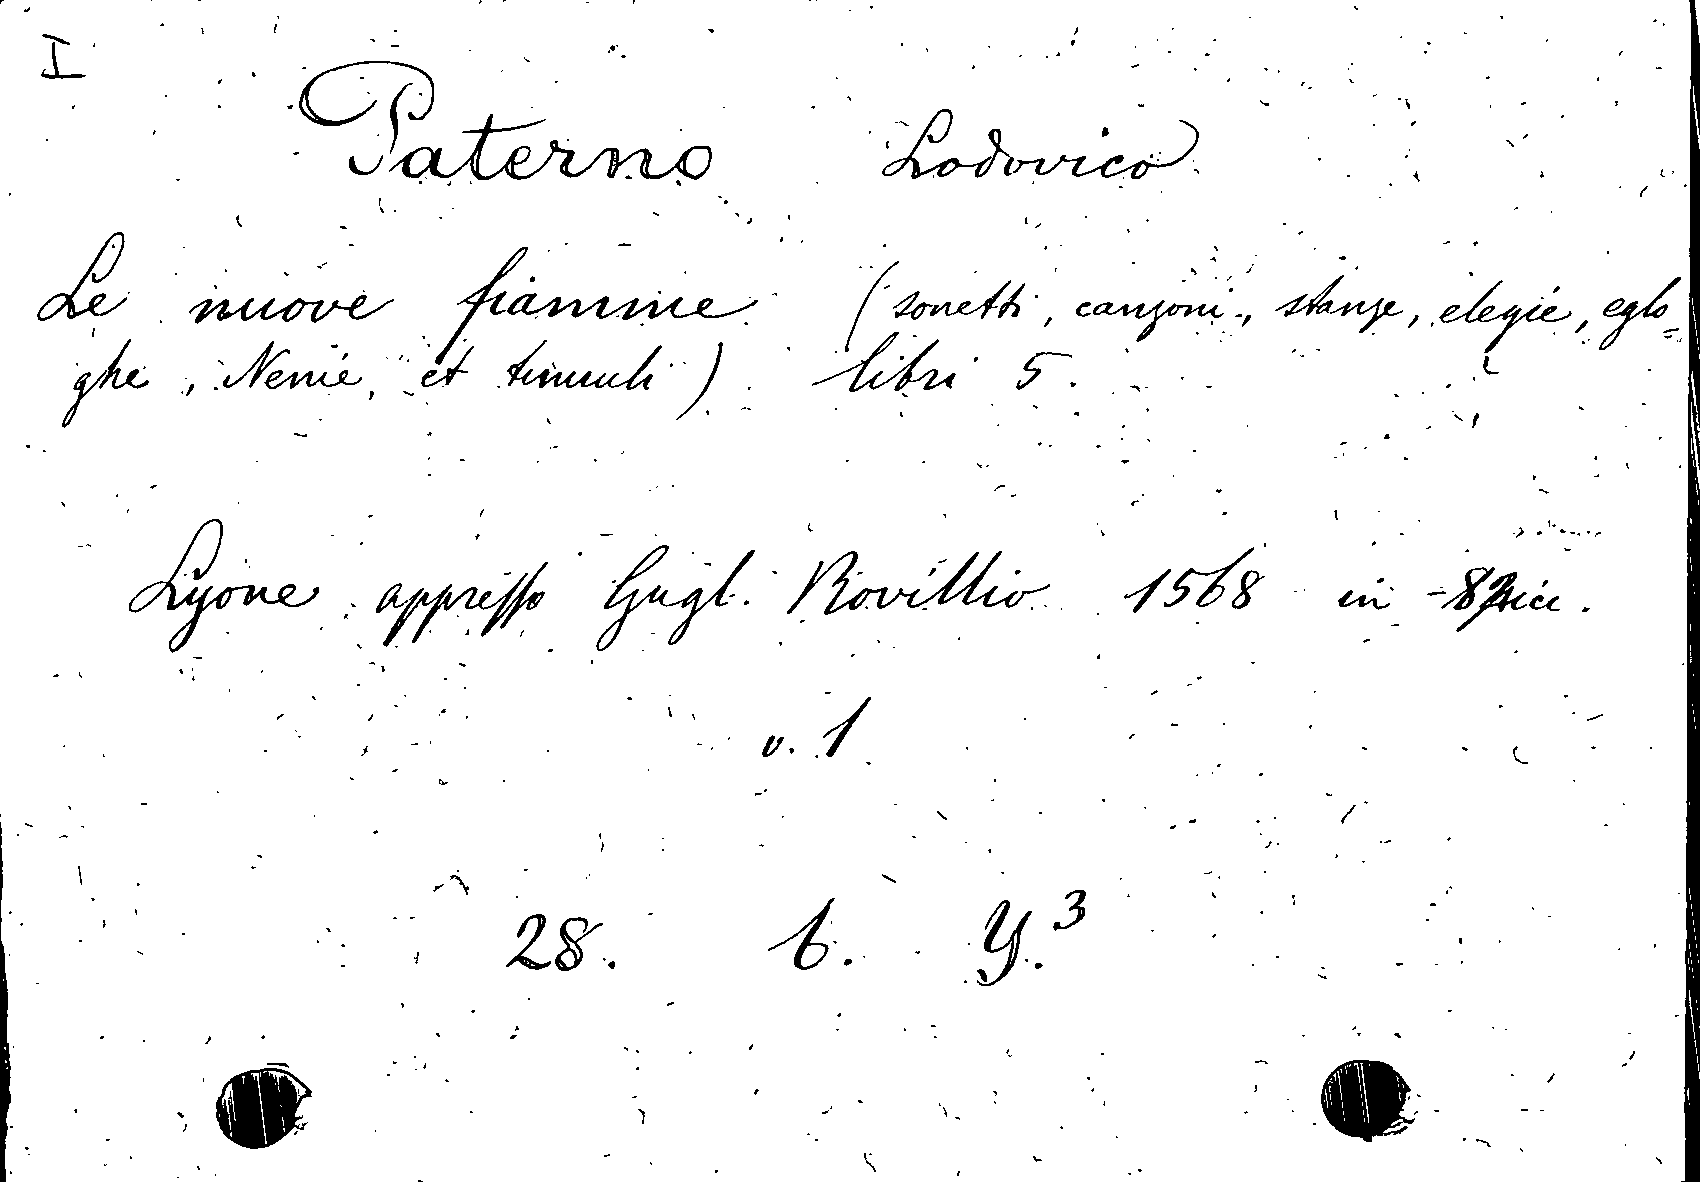 I
Paterno Lodovico
Le nuove fiamme (sonetti, canzoni, stanze, elegie, eglo=
ghe, Nenie, et tumuli) libri 5.
Lyone appresso Gugl. Rovillio 1568 in
v. 1
28. b. Y.3